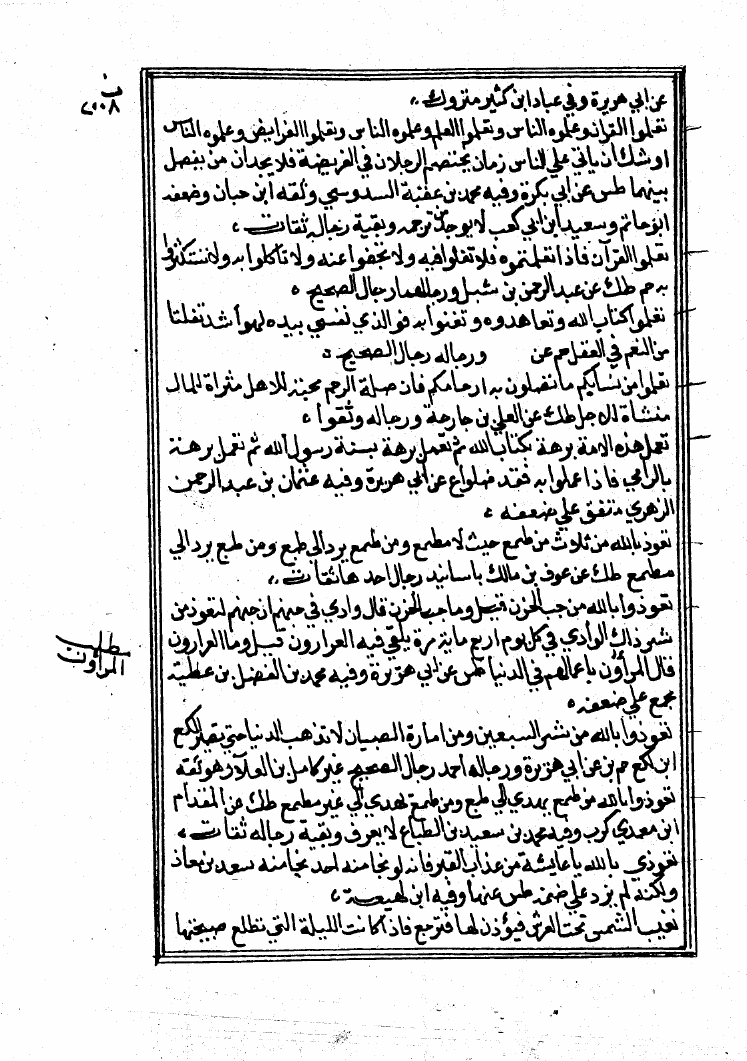 ن
٢٠٠٨
عن ابي هريرة وفي عباد ابن كثير متروك
تعلموا القران وعلموه الناس وتعلموا العلم وعلموه الناس وتعلموا الفرايض وعلموه الناس
اوشك ان ياتي علي الناس زمان يختصم الرجلان في الفريضة فلا يجدان من يفصل
بينهما طس عن ابي بكرة وفيه محمد بن عقبة السدوسي وثقه ابن حبان وضعفه
ابو حاتم وسعيد ابن ابي كعب لا يوجد ترجمه وبقية رجاله ثقات
تعلموا القرآن فاذا تعلمتموه فلا تغلوا فيه ولا تجفوا عنه ولا تاكلوا به ولا تستكثروا
به حم طك عن عبد الرحمن بن شبل ورجالهما رجال الصحيح
تعلموا كتاب الله وتعاهدوه وتغنوا به فوالذي نفسي بيده لهو أشد تفلتا
من النعم في العقل حم عن ورجاله رجال الصحيح
تعلموا من نسابكم ما تصلون به ارحامكم فان صلة الرحم محبة للاهل مثراة للمال
منشاة للاجل طك عن العلي بن جارحة ورجاله وثقوا
تعمل هذه الامة برهة بكتاب الله ثم تعمل برهة بسنة رسول الله ثم تعمل برهة
بالراي فاذا عملوا به فقد ضلوا ع عن ابي هريرة وفيه عثمان بن عبد الرحمن
الزهري متفق علي ضعفه
تعوذ بالله من ثلاث من طمع حيث لا مطمع ومن طمع يرد الي طبع ومن طبع يرد الي
مطمع طك عن عوف بن مالك باسانيد رجال احدها ثقات
تعوذوا بالله من جب الحزن قيل وما جب الحزن قال وادي في جهنم ان جهنم لتعوذ من
شر ذاك الوادي في كل يوم اربع ماية مرة يلقي فيه العرارون قيل وما العرارون
قال المراؤن باعمالهم في الدنيا طس عن ابي هريرة وفيه محمد بن الفضل بن عطية
مجمع علي ضعفه
مطلب
المراؤن
تعوذوا بالله من شر السبعين ومن امارة الصبيان لا تذهب الدنيا حتي يصير للكع
ابن لكع حم بز عن ابي هريرة ورجاله احمد رجال الصحيح غير كامل بن العلا وهو ثقة
تعوذوا بالله من طمع يهدي الي طبع ومن طمع يهدي الي غير مطمع طك عن المقدام
ابن معدي كرب وفيه محمد بن سعيد بن الطباع لا يعرف وبقية رجاله ثقات
تعوذي بالله يا عايشة من عذاب القبر فانه لو نجا منه احد نجا منه سعد بن معاذ
ولكنه لم يزد علي ضمة طس عنها وفيه ابن لهيعة
تغيب الشمس تحت العرش فيؤذن لها فترجع فاذا كانت الليلة التي تطلع صبيحتها